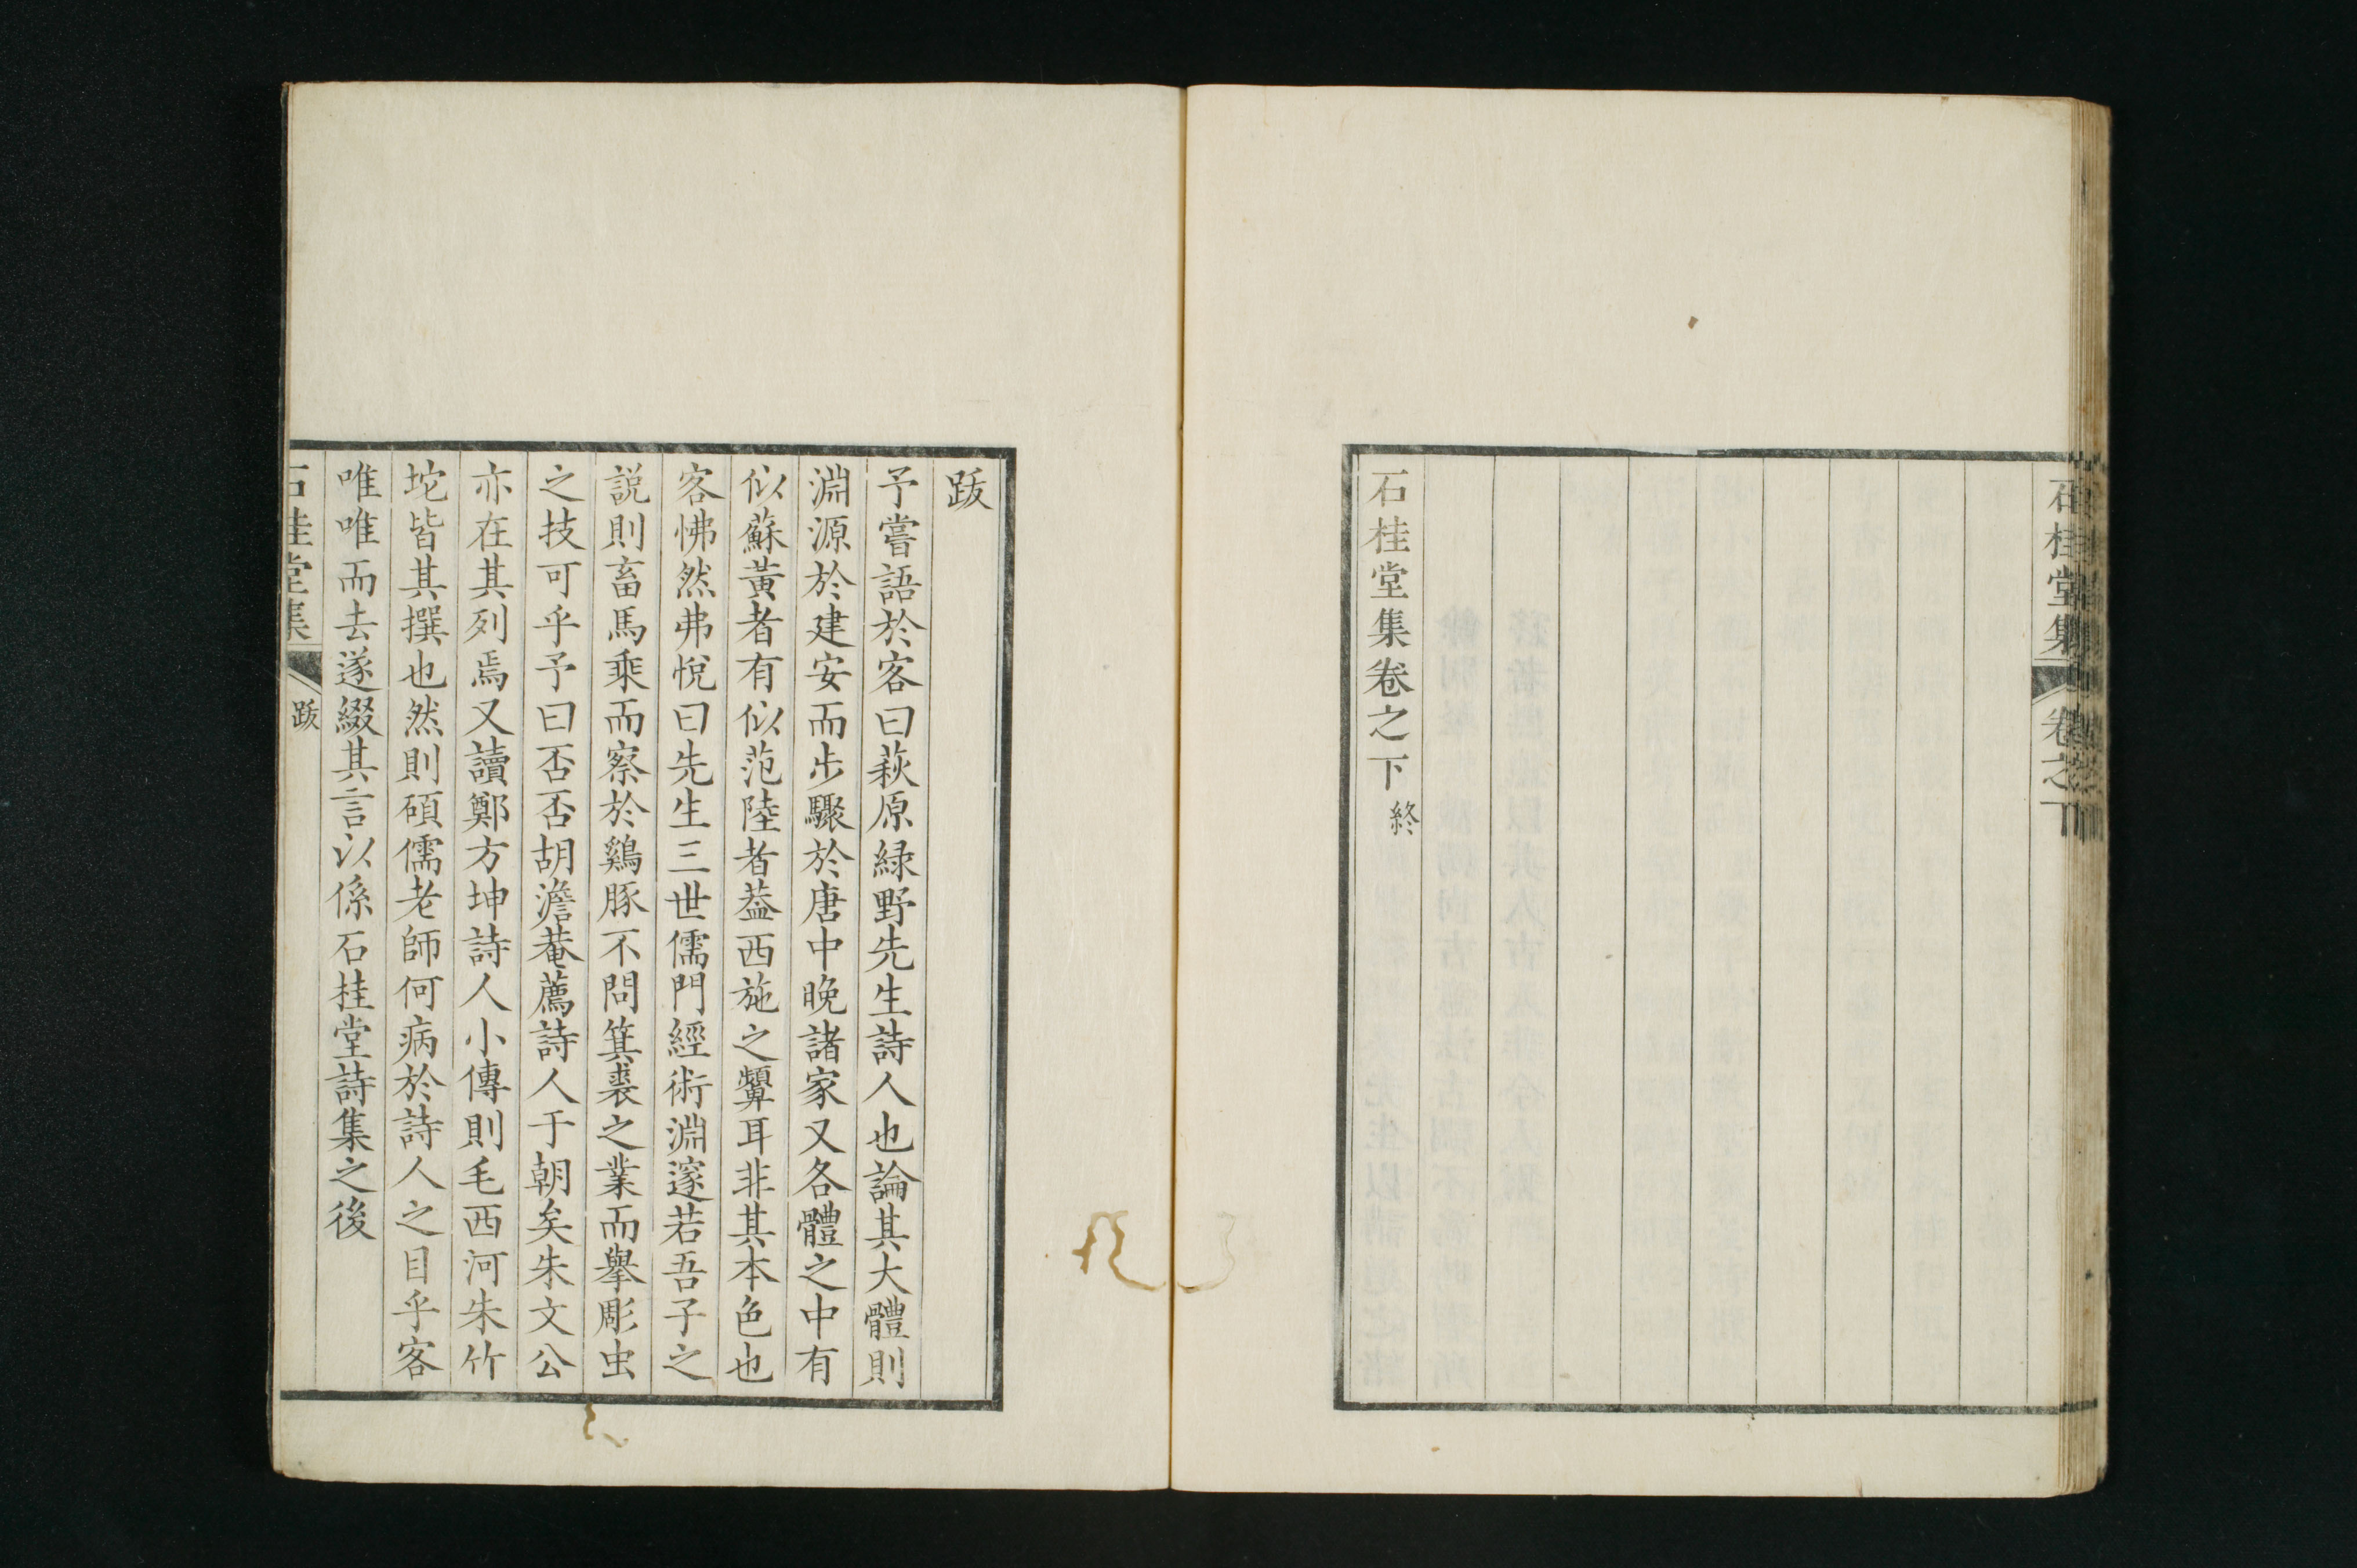 石桂堂集 卷之下
石桂堂集卷之下 終
跋
予嘗語於客曰萩原緑野先生詩人也論其大體則
淵源於建安而步驟於唐中晚諸家又各體之中有
似蘇黃者有似范陸者葢西施之顰耳非其本色也
客怫然弗悅曰先生三世儒門經術淵邃若吾子之
説則畜馬乘而察於鷄豚不問箕裘之業而舉彫虫
之技可乎予曰否否胡澹菴薦詩人于朝矣朱文公
亦在其列焉又讀鄭方坤詩人小傳則毛西河朱竹
坨皆其撰也然則碩儒老師何病於詩人之目乎客
唯唯而去遂綴其言以係石桂堂詩集之後
石桂堂集 跋